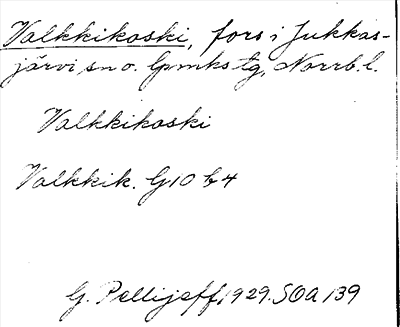 Valkkikoski, fors i Jukkas-
järvi sn o. Gpmkstg, Norrb. l.
Valkkikoski
Valkkik. G10 b4
G. Pellijeff, 1929. SOA 139